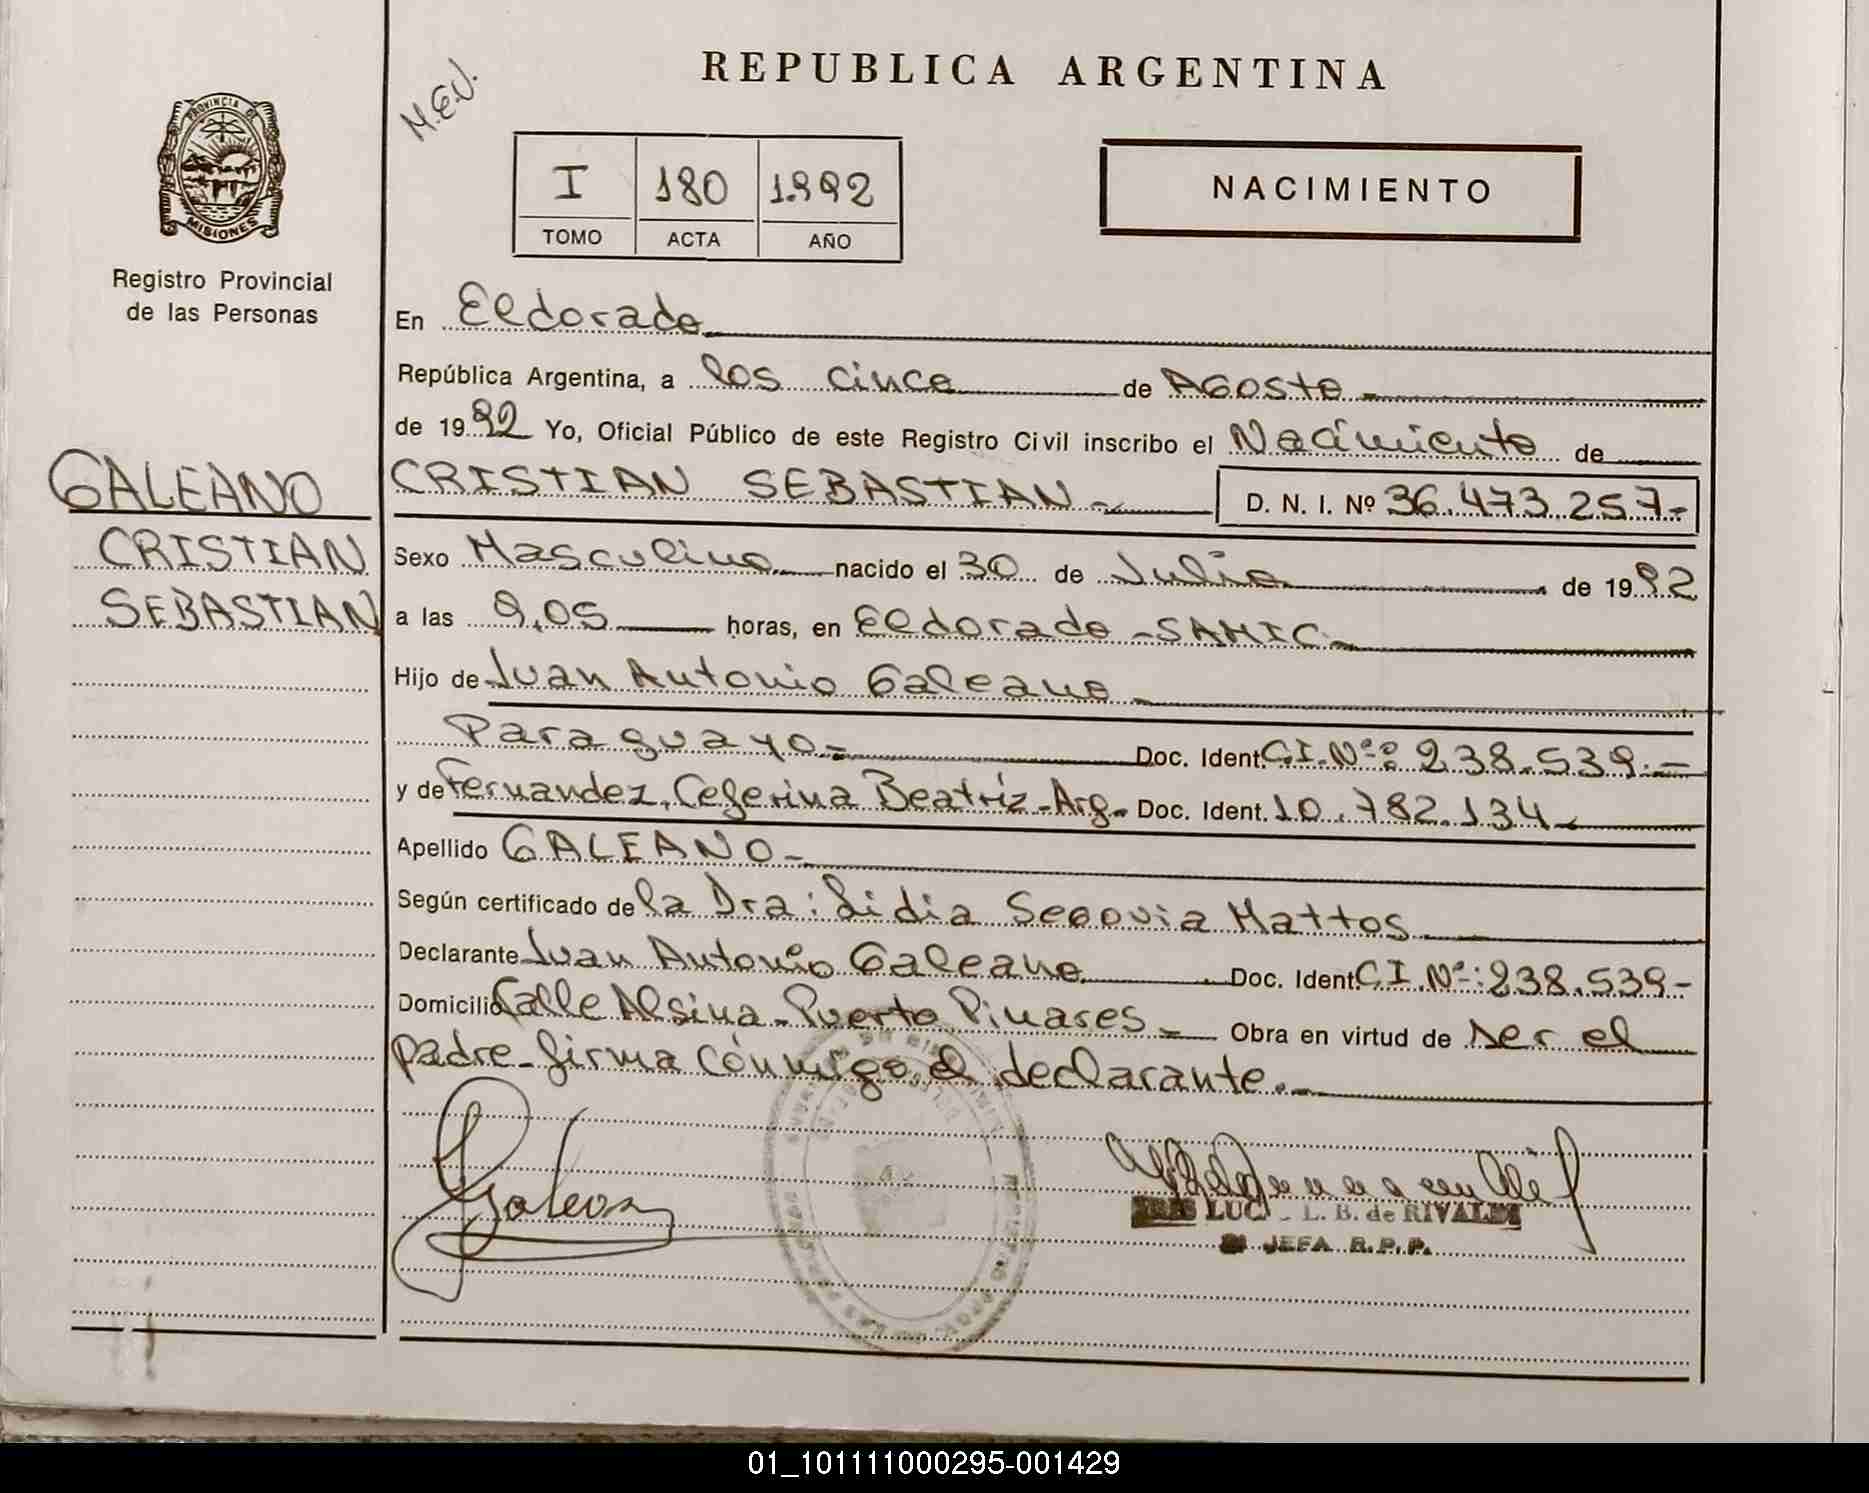 REPUBLICA ARGENTINA
M.E.V.
PROVINCIA DE
MISIONES
Registro Provincial
de las Personas
I 180 1.992
TOMO ACTA AÑO
NACIMIENTO
En Eldorado
República Argentina, a los cinco de Agosto
de 1992 Yo, Oficial Público de este Registro Civil inscribo el Nacimiento de
CRISTIAN SEBASTIAN D. N. I. Nº 36.473.257-
GALEANO
CRISTIAN
SEBASTIAN
Sexo Masculino nacido el 30 de Julio de 1992
a las 9,05 horas, en Eldorado - SAMIC.
Hijo de Juan Antonio Galeano
Paraguayo.- Doc. Ident. C.I.Nº: 238.539.-
y de Fernandez, Ceferina Beatríz-Arg. Doc. Ident. 10.782.134
Apellido GALEANO-
Según certificado de la Dra: Lidia Segovia Mattos
Declarante Juan Antonio Galeano Doc. Ident. C.I.Nº: 238.539-
Domicilio Calle Alsina-Puerto Pinares- Obra en virtud de ser el
padre-firma conmigo el declarante.
Galeano
L. B. de RIVALDI
JEFA R.P.P.
01_101111000295-001429